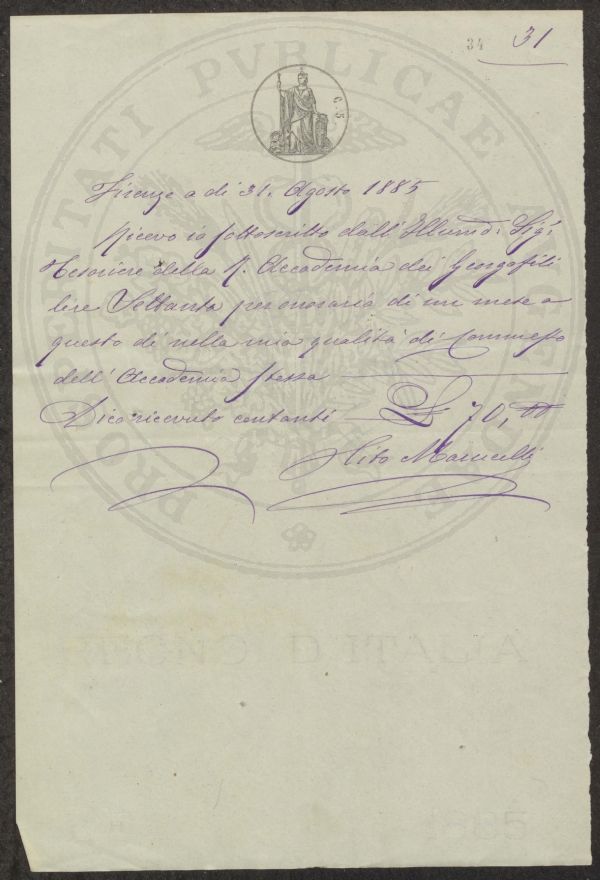 34 31
C. 5.
PROSPERITATI PVBLICAE AVGENDAE
Firenze a dì 31. Agosto 1885
Ricevo io sottoscritto dall' Illmo: Sig:
Tesoriere della R. Accademia dei Georgofili
lire Settanta per onorario di un mese a
questo dì nella mia qualità di Commesso
dell' Accademia stessa
Dico ricevuto contanti L 70,00
Tito
REGNO D'ITALIA